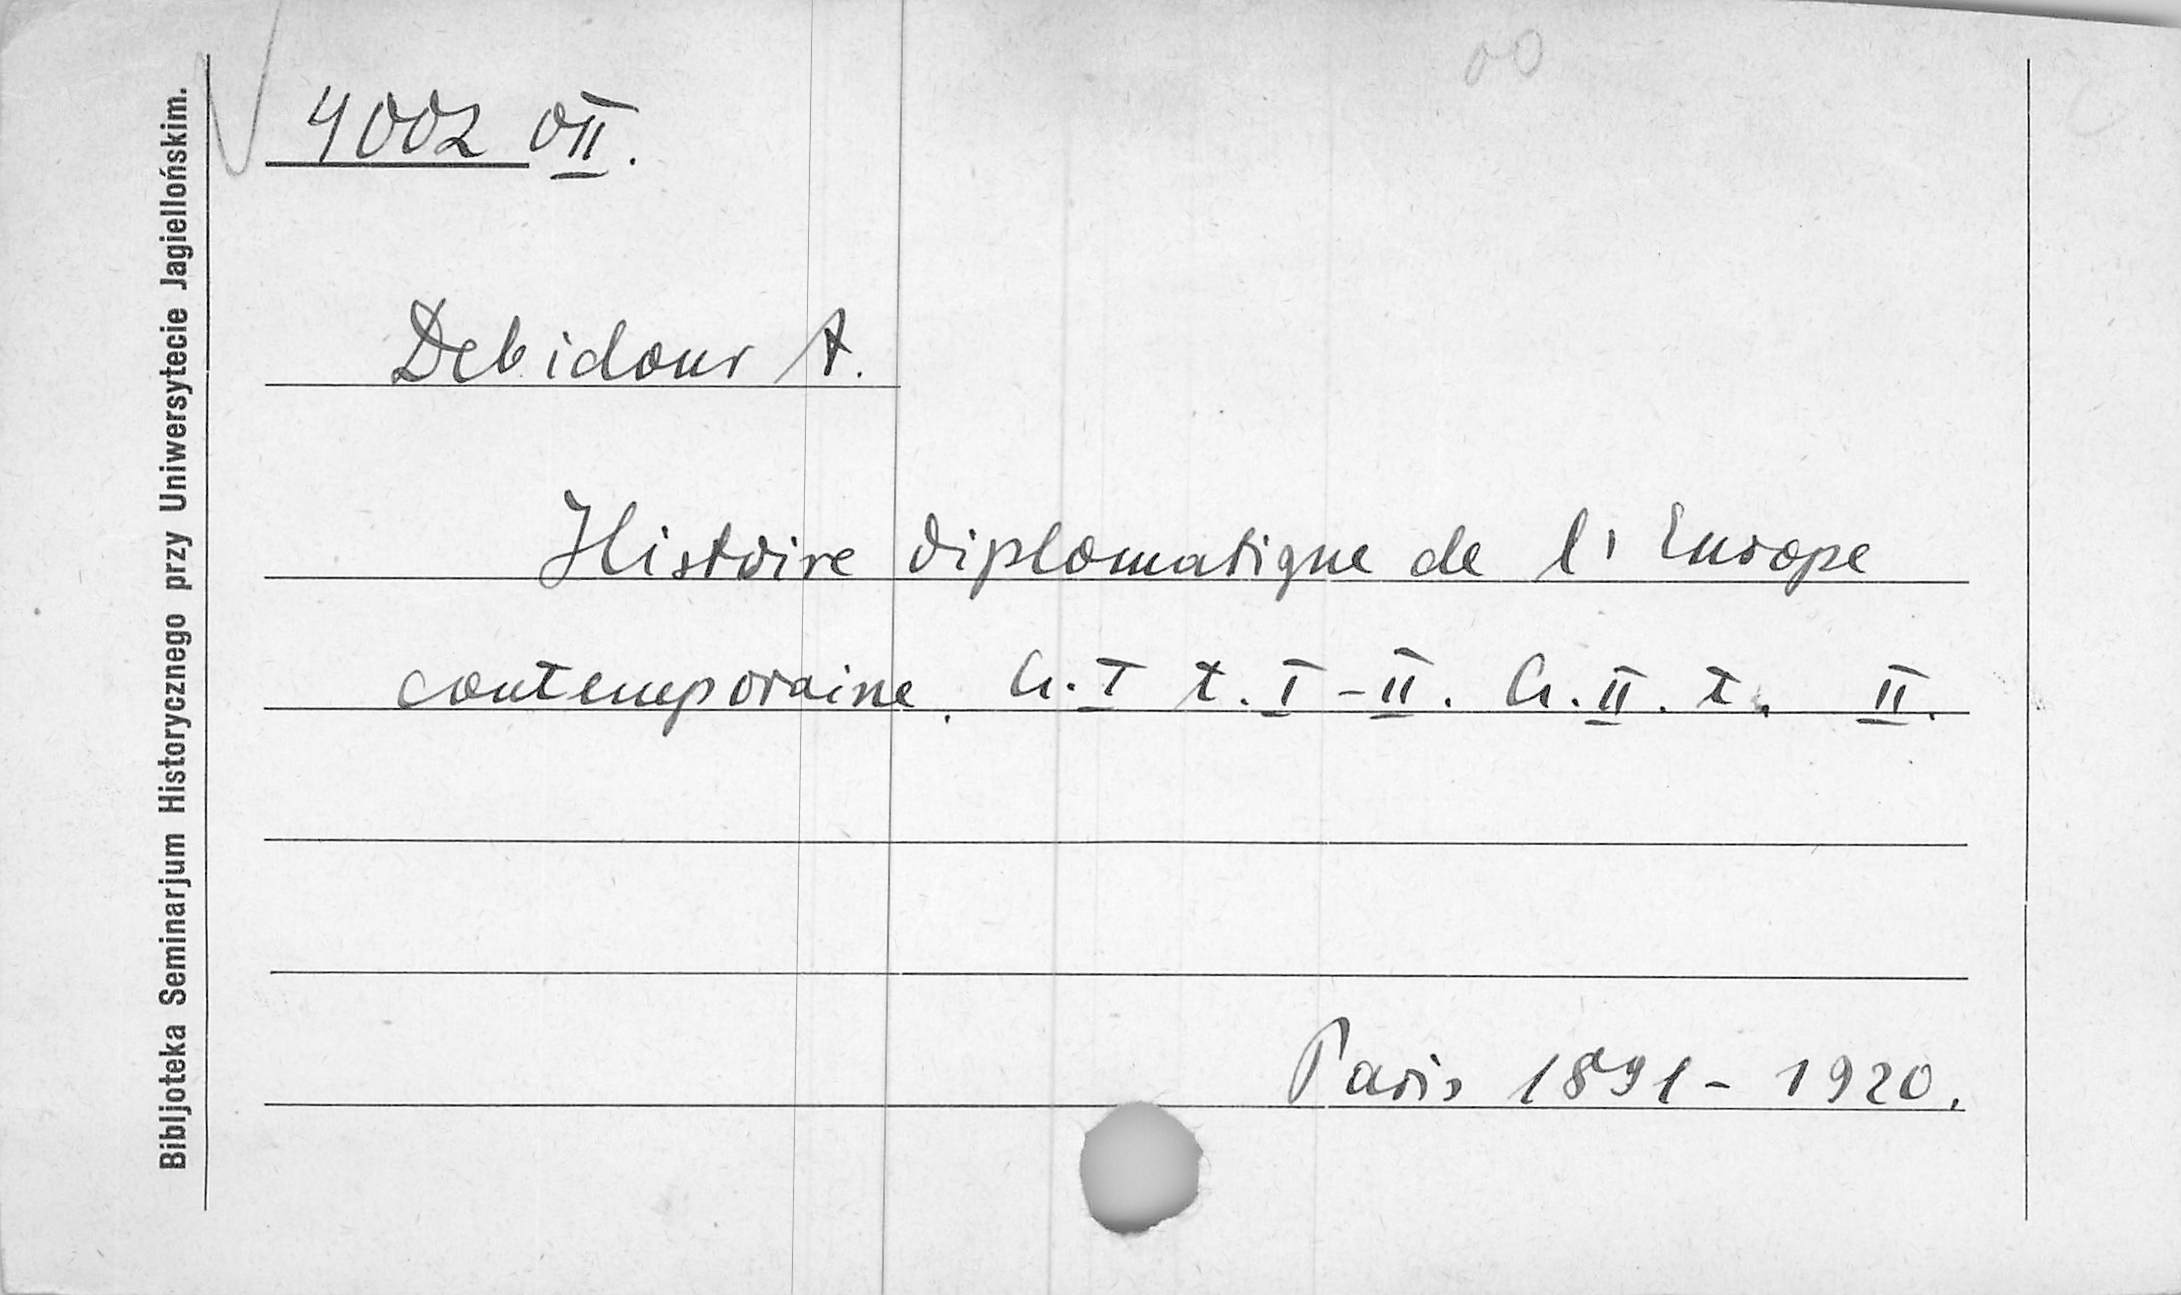 4002 OII.
Debidour A.
Histoire diplomatique de l'Europe
contemporaine. Cz. I t. I-II. Cz. II. t. II.
Paris 1891-1920.
Bibljoteka Seminarjum Historycznego przy Uniwersytecie Jagiellońskim.